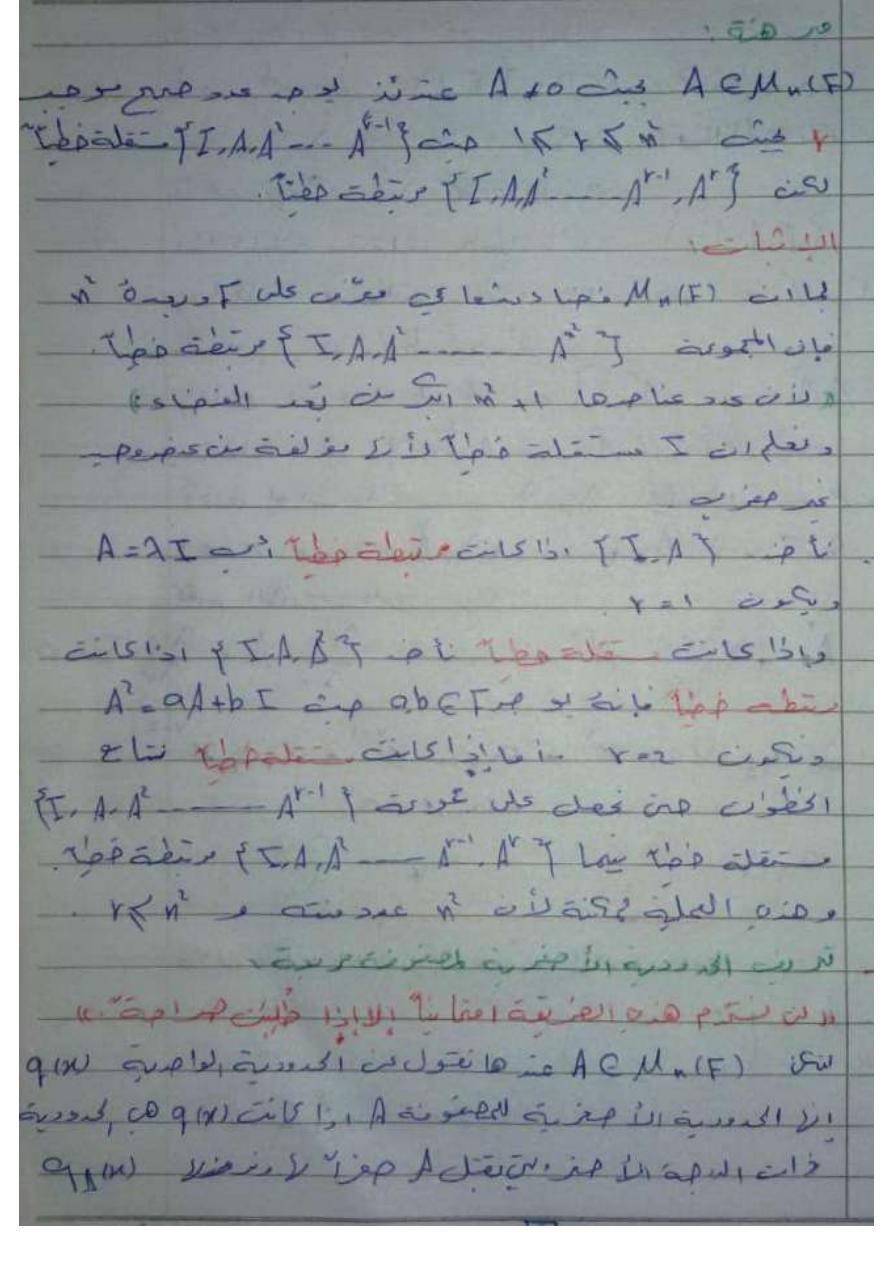 مبرهنة :
A ∈ M_n(F) بحيث A ≠ 0 عندئذ يوجد عدد صحيح موجب
r بحيث 1 ≤ r ≤ n² حيث {I, A, A² --- A^{r-1}} مستقلة خطياً
لكن {I, A, A² ----- A^{r-1}, A^r} مرتبطة خطياً.
الإثبات:
بما ان M_n(F) فضاء شعاعي معرّف على F وبعده n²
فإن المجموعة {I, A, A² ------- A^{n²}} مرتبطة خطياً.
« لأن عدد عناصرها n²+1 اكبر من بُعد الفضاء »
ونعلم ان I مستقلة خطياً لأنها مؤلفة من عنصر وحيد
غير صفري
نأخذ {I, A} اذا كانت مرتبطة خطياً أي A = λI
ويكون r = 1
وإذا كانت مستقلة خطياً نأخذ {I, A, A²} اذا كانت
مرتبطة خطياً فإنه يوجد a,b ∈ F حيث A² = aA + bI
ويكون r = 2 . أما إذا كانت مستقلة خطياً نتابع
الخطوات حتى نحصل على مجموعة {I, A, A² ------ A^{r-1}}
مستقلة خطياً بينما {I, A, A² --- A^{r-1}, A^r} مرتبطة خطياً.
وهذه العملية ممكنة لأن n² عدد منته و r ≤ n² .
تعريف الحدودية الأصغرية لمصفوفة مربعة.
« لن نستخدم هذه الطريقة امتحانياً إلا إذا طُلبت صراحة. »
لتكن A ∈ M_n(F) عندها نقول عن الحدودية الواحدية q(x)
إنها الحدودية الأصغرية للمصفوفة A اذا كانت q(x) هي الحدودية
ذات الدرجة الأصغر التي تقبل A صفراً لها q_A(x)